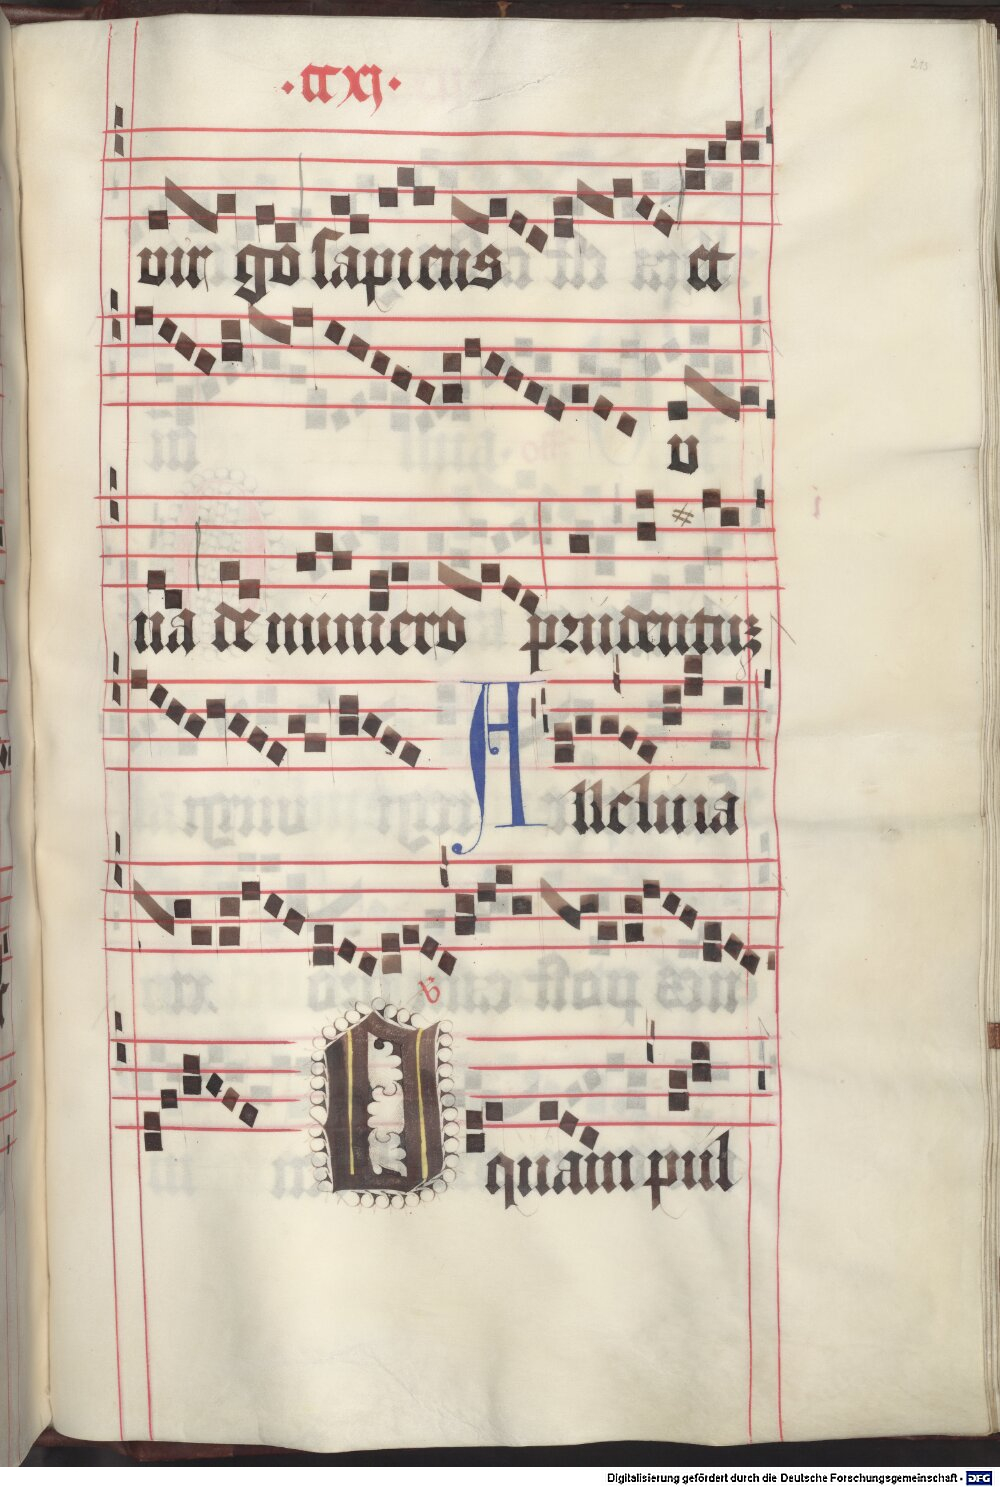 ·ccxj·
213
virgo sapiens et
v
na de numero prudentuz
Alleluia
℣
O quam pul
Digitalisierung gefördert durch die Deutsche Forschungsgemeinschaft - DFG